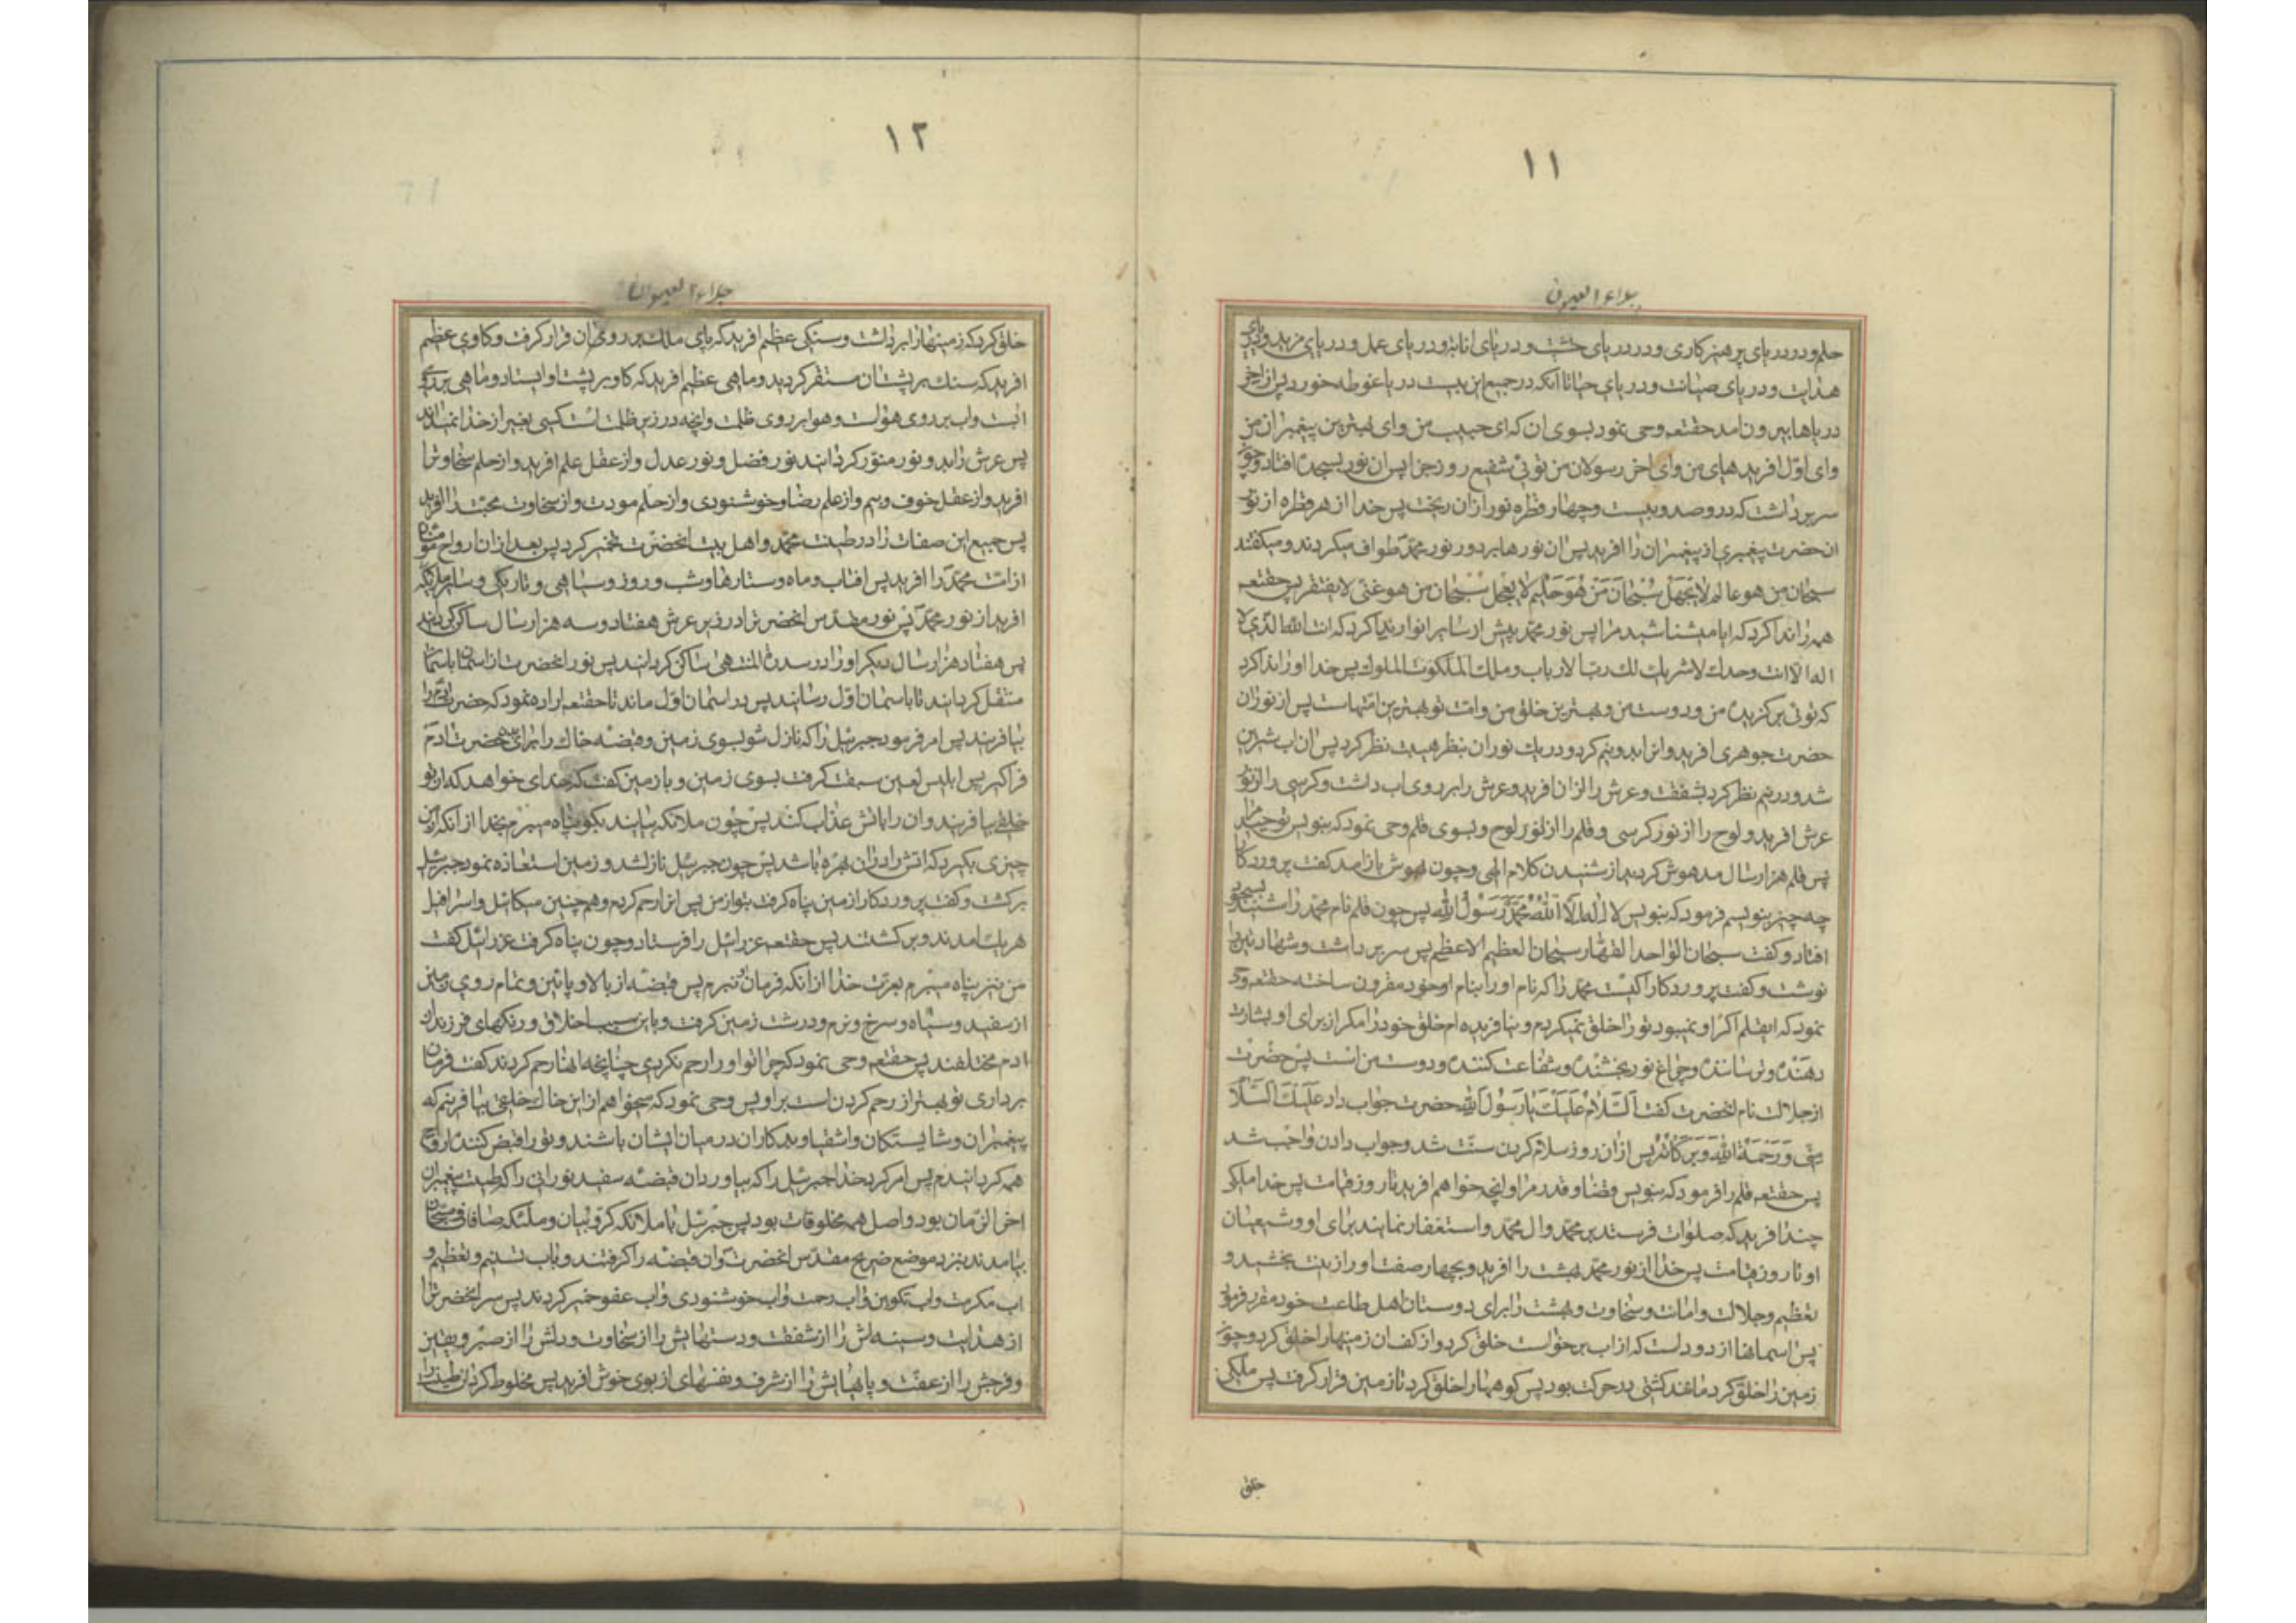 ۱۱
جلاء العیون
حلم و در دریای پرهیزکاری و در دریای خشیت و در دریای انابه و در دریای عمل و در دریای مزید و دریای
هدایت و در دریای صیانت و در دریای حیا تا آنکه در جمیع این بیست دریا غوطه خورد پس از آخر
دریاها بیرون امد حقتعه وحی نمود بسوی ان که ای حبیب من و ای بهترین پیغمبران من
و ای اوّل افریده‌های من و ای اخر رسولان من توئی شفیع روز جزا پس ان نور بسجده افتاد و چون
سر برداشت که درو صد و بیست و چهار قطره نور از ان ریخت پس خدا از هر قطره از نور
ان حضرت پیغمبری از پیغمبران را افرید پس ان نورها بر دور نور محمّد طواف میکردند و میگفتند
سبحان من هو عالم لا یجهل سُبْحانَ مَنْ هُوَ حَلیم لا یعجل سُبْحان من هو غنی لا یفتقر پس حقتعه
همه را ندا کرد که ایا میشناسید مرا پس نور محمّد پیش از سایر انوار ندا کرد که انت الله الذی لا
اله الا انت وحدک لا شریک لک رب الارباب و ملک الملکوت الملوک پس خدا او را ندا کرد
که توئی برگزیده من و دوست من و بهترین خلق من و امت تو بهترین امتهاست پس از نور ان
حضرت جوهری افرید و انرا بدو نیم کرد و در یک نور ان بنظر هیبت نظر کرد پس ان اب شیرین
شد و در نیم نظر کرد بشفقت و عرش را از ان افرید و عرش را بر روی اب داشت و کرسی را از نور
عرش افرید و لوح را از نور کرسی و قلم را از نور لوح و بسوی قلم وحی نمود که بنویس توحید مرا
پس قلم هزار سال مدهوش گردید از شنیدن کلام الهی و چون بهوش باز امد گفت پروردگارا
چه چیز بنویسم فرمود که بنویس لا اله الا اللّٰه محمّد رَسُولُ الله پس چون قلم نام محمّد را شنید بسجود
افتاد و گفت سبحان الواحد القهّار سبحان العظیم الاعظم پس سر برداشت و شهادتین را
نوشت و گفت پروردگارا کیست محمّد را که نام او را بنام او خود مقرون ساخته حقتعه وحی
نمود که ایقلم اگر او نمیبود تو را خلق نمیکردم و نیافریده‌ام خلق خود را مگر از برای او بشارت
دهنده و ترساننده و چراغ نور بخشنده و شفاعت کننده و دوست من است پس حضرت
از جلالت نام انحضرت گفت اَلسَّلامُ عَلَیْکَ یا رَسُولَ اللهِ حضرت جواب داد عَلَیْکَ السَّلا
مِنّی وَ رَحْمَةُ اللهِ وَ بَرَکاتُهُ پس از ان روز سلام کردن سنّت شد و جواب دادن واجب شد
پس حقتعه قلم را فرمود که بنویس قضا و قدر مرا و انچه خواهم افرید تا روز قیامت پس خدا ملکی
چند افرید که صلوات فرستند بر محمّد و ال محمّد و استغفار نمایند برای او و شیعیان
او تا روز قیامت پس خدا از نور محمّد بهشت را افرید و بچهار صفت او را زینت بخشید و
تعظیم و جلالت و امانت و سخاوت و بهشت را برای دوستان اهل طاعت خود مقرر فرمود
پس اسمانها از دودست که از اب برخواست خلق کرد و از کف ان زمینها را خلق کرد و چون
زمین را خلق کرد مانند کشتی در حرکت بود پس کوهها را خلق کرد تا زمین قرار گرفت پس ملکی
خلق
۱۲
جلاء العیون
خلق کرد که زمینها را برداشت و سنگی عظیم افرید که پای ملک بر روی ان قرار گرفت و گاوی عظیم
افرید که سنگ بر پشت ان مستقر گردید و ماهی عظیم افرید که گاو بر پشت او ایستاد و ماهی بر روی
ابست و اب بر روی هواست و هوا بر روی ظلمت و انچه در زیر ظلمت است کسی بغیر از خدا نمیداند
پس عرش را بدو نور منوّر گردانید نور فضل و نور عدل و از عقل علم افرید و از حلم سخاوت را
افرید و از عقل خوف و بیم و از علم رضا و خوشنودی و از حلم مودت و از سخاوت محبّت را افرید
پس جمیع این صفات را در طینت محمّد و اهل بیت انحضرت تخمیر کرد پس بعد از ان ارواح مؤمنان
از امّت محمّد را افرید پس افتاب و ماه و ستارها و شب و روز و سیاهی و تاریکی و سایر ملائکه
افرید از نور محمّد پس نور مقدّس انحضرت را در زیر عرش هفتاد و سه هزار سال ساکن گردانید
پس هفتاد هزار سال دیگر او را در سدرة المنتهی ساکن گردانید پس نور انحضرت از اسمان باسمان
منتقل گردانید تا باسمان اوّل رسانید پس در اسمان اوّل ماند تا حقتعه اراده نمود که حضرت ادم را
بیافریند پس امر فرمود جبرئیل را که نازل شو بسوی زمین و قبضه خاک را برای حضرت ادم
فرا گیر پس ابلیس لعین سبقت گرفت بسوی زمین و با زمین گفت که خدای خواهد که از تو
خلقی بیافریند و ان را باتش عذاب کند پس چون ملائکه بیایند بگو پناه میبرم بخدا از انکه از من
چیزی بگیرد که اتش را در ان بهره باشد پس چون جبرئیل نازل شد و زمین استعاذه نمود جبرئیل
برگشت و گفت پروردگارا زمین پناه گرفت بتو از من پس انرا رحم کردم و هم‌چنین میکائیل و اسرافیل
هر یک امدند و برگشتند پس حقتعه عزرائیل را فرستاد و چون پناه گرفت عزرائیل گفت
من نیز پناه میبرم بعزت خدا از انکه فرمان نبرم پس قبضه از بالا و پائین و تمام روی زمین
از سفید و سیاه و سرخ و نرم و درشت زمین گرفت و باین سبب اخلاق و رنگهای فرزندان
ادم مختلفند پس حقتعه وحی نمود که چرا تو او را رحم نکردی چنانچه انها رحم کردند گفت فرمان
برداری تو بهتر از رحم کردن است بر او پس وحی نمود که میخواهم از این خاک خلقی بیافرینم که
پیغمبران و شایستگان و اشقیا و بدکاران در میان ایشان باشند و تو را قبض کننده ارواح
همه گردانیدم پس امر کرد خدا جبرئیل را که بیاورد ان قبضه سفید نورانی را که طینت پیغمبران
اخر الزّمان بود و اصل همه مخلوقات بود پس جبرئیل با ملائکه کرّوبیان و ملئکه صافان و مسبّحان
بیامدند بنزد موضع ضریح مقدّس انحضرت و ان قبضه را گرفتند و باب تسنیم و تعظیم و
اب مکرمت و اب تکوین و اب رحمت و اب خوشنودی و اب عفو خمیر کردند پس سر انحضرت را
از هدایت و سینه‌اش را از شفقت و دستهایش را از سخاوت و دلش را از صبر و یقین
و فرجش را از عفّت و پاهایش را از شرف و نفسهای از بوی خوش افرید پس مخلوط کرد ان طینت را